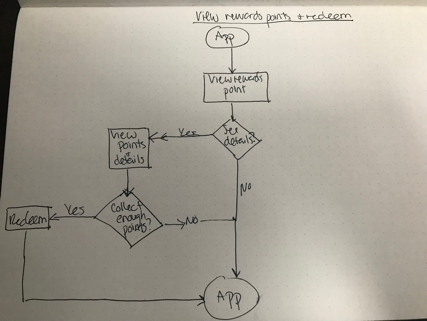 View rewards points + redeem
App
View rewards
point
See
details?
Yes
View
Points
+
details
NO
Collect
enough
points?
Yes
NO
Redeem
App